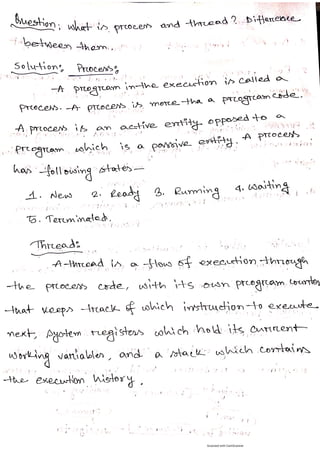 Question: What is process and thread? Difference
between them.
Solution: Process:
A program in the execution is called a
process. A process is more tha a program code.
A process is an active entity opposed to a
program which is a passive entity. A process
has following states —
1. New 2. Ready 3. Running 4. Waiting
5. Terminated.
Thread:
A thread is a flow of execution through
the process code, with its own program counter
that keeps track of which instruction to execute
next, system registers which hold its current
working variables, and a stack which contains
the execution history.
Scanned with CamScanner